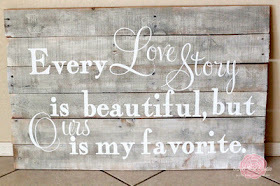 Every Love Story
is beautiful, but
Ours is my favorite.